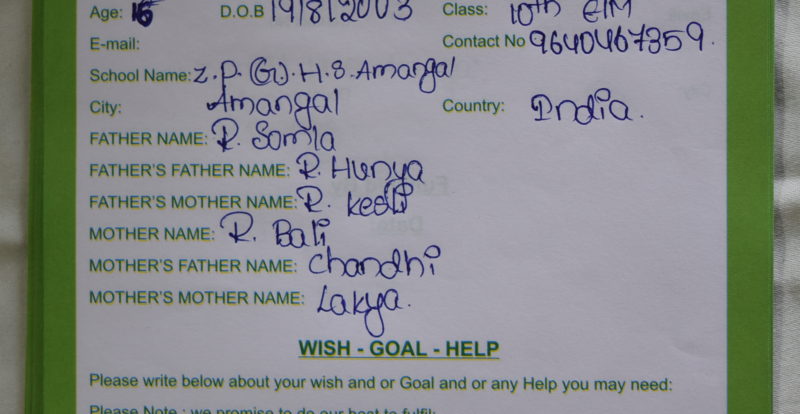 Age: 16 D.O.B 19/8/2003 Class: 10th E/M
E-mail: Contact No 9640467359.
School Name: Z.P.(G).H.S. Amangal
City: Amangal Country: India.
FATHER NAME: R. Somla
FATHER'S FATHER NAME: R. Hunya
FATHER'S MOTHER NAME: R. Keeli
MOTHER NAME: R. Bali
MOTHER'S FATHER NAME: Chandhi
MOTHER'S MOTHER NAME: Lakya.
WISH - GOAL - HELP
Please write below about your wish and or Goal and or any Help you may need:
Please Note : we promise to do our best to fulfil